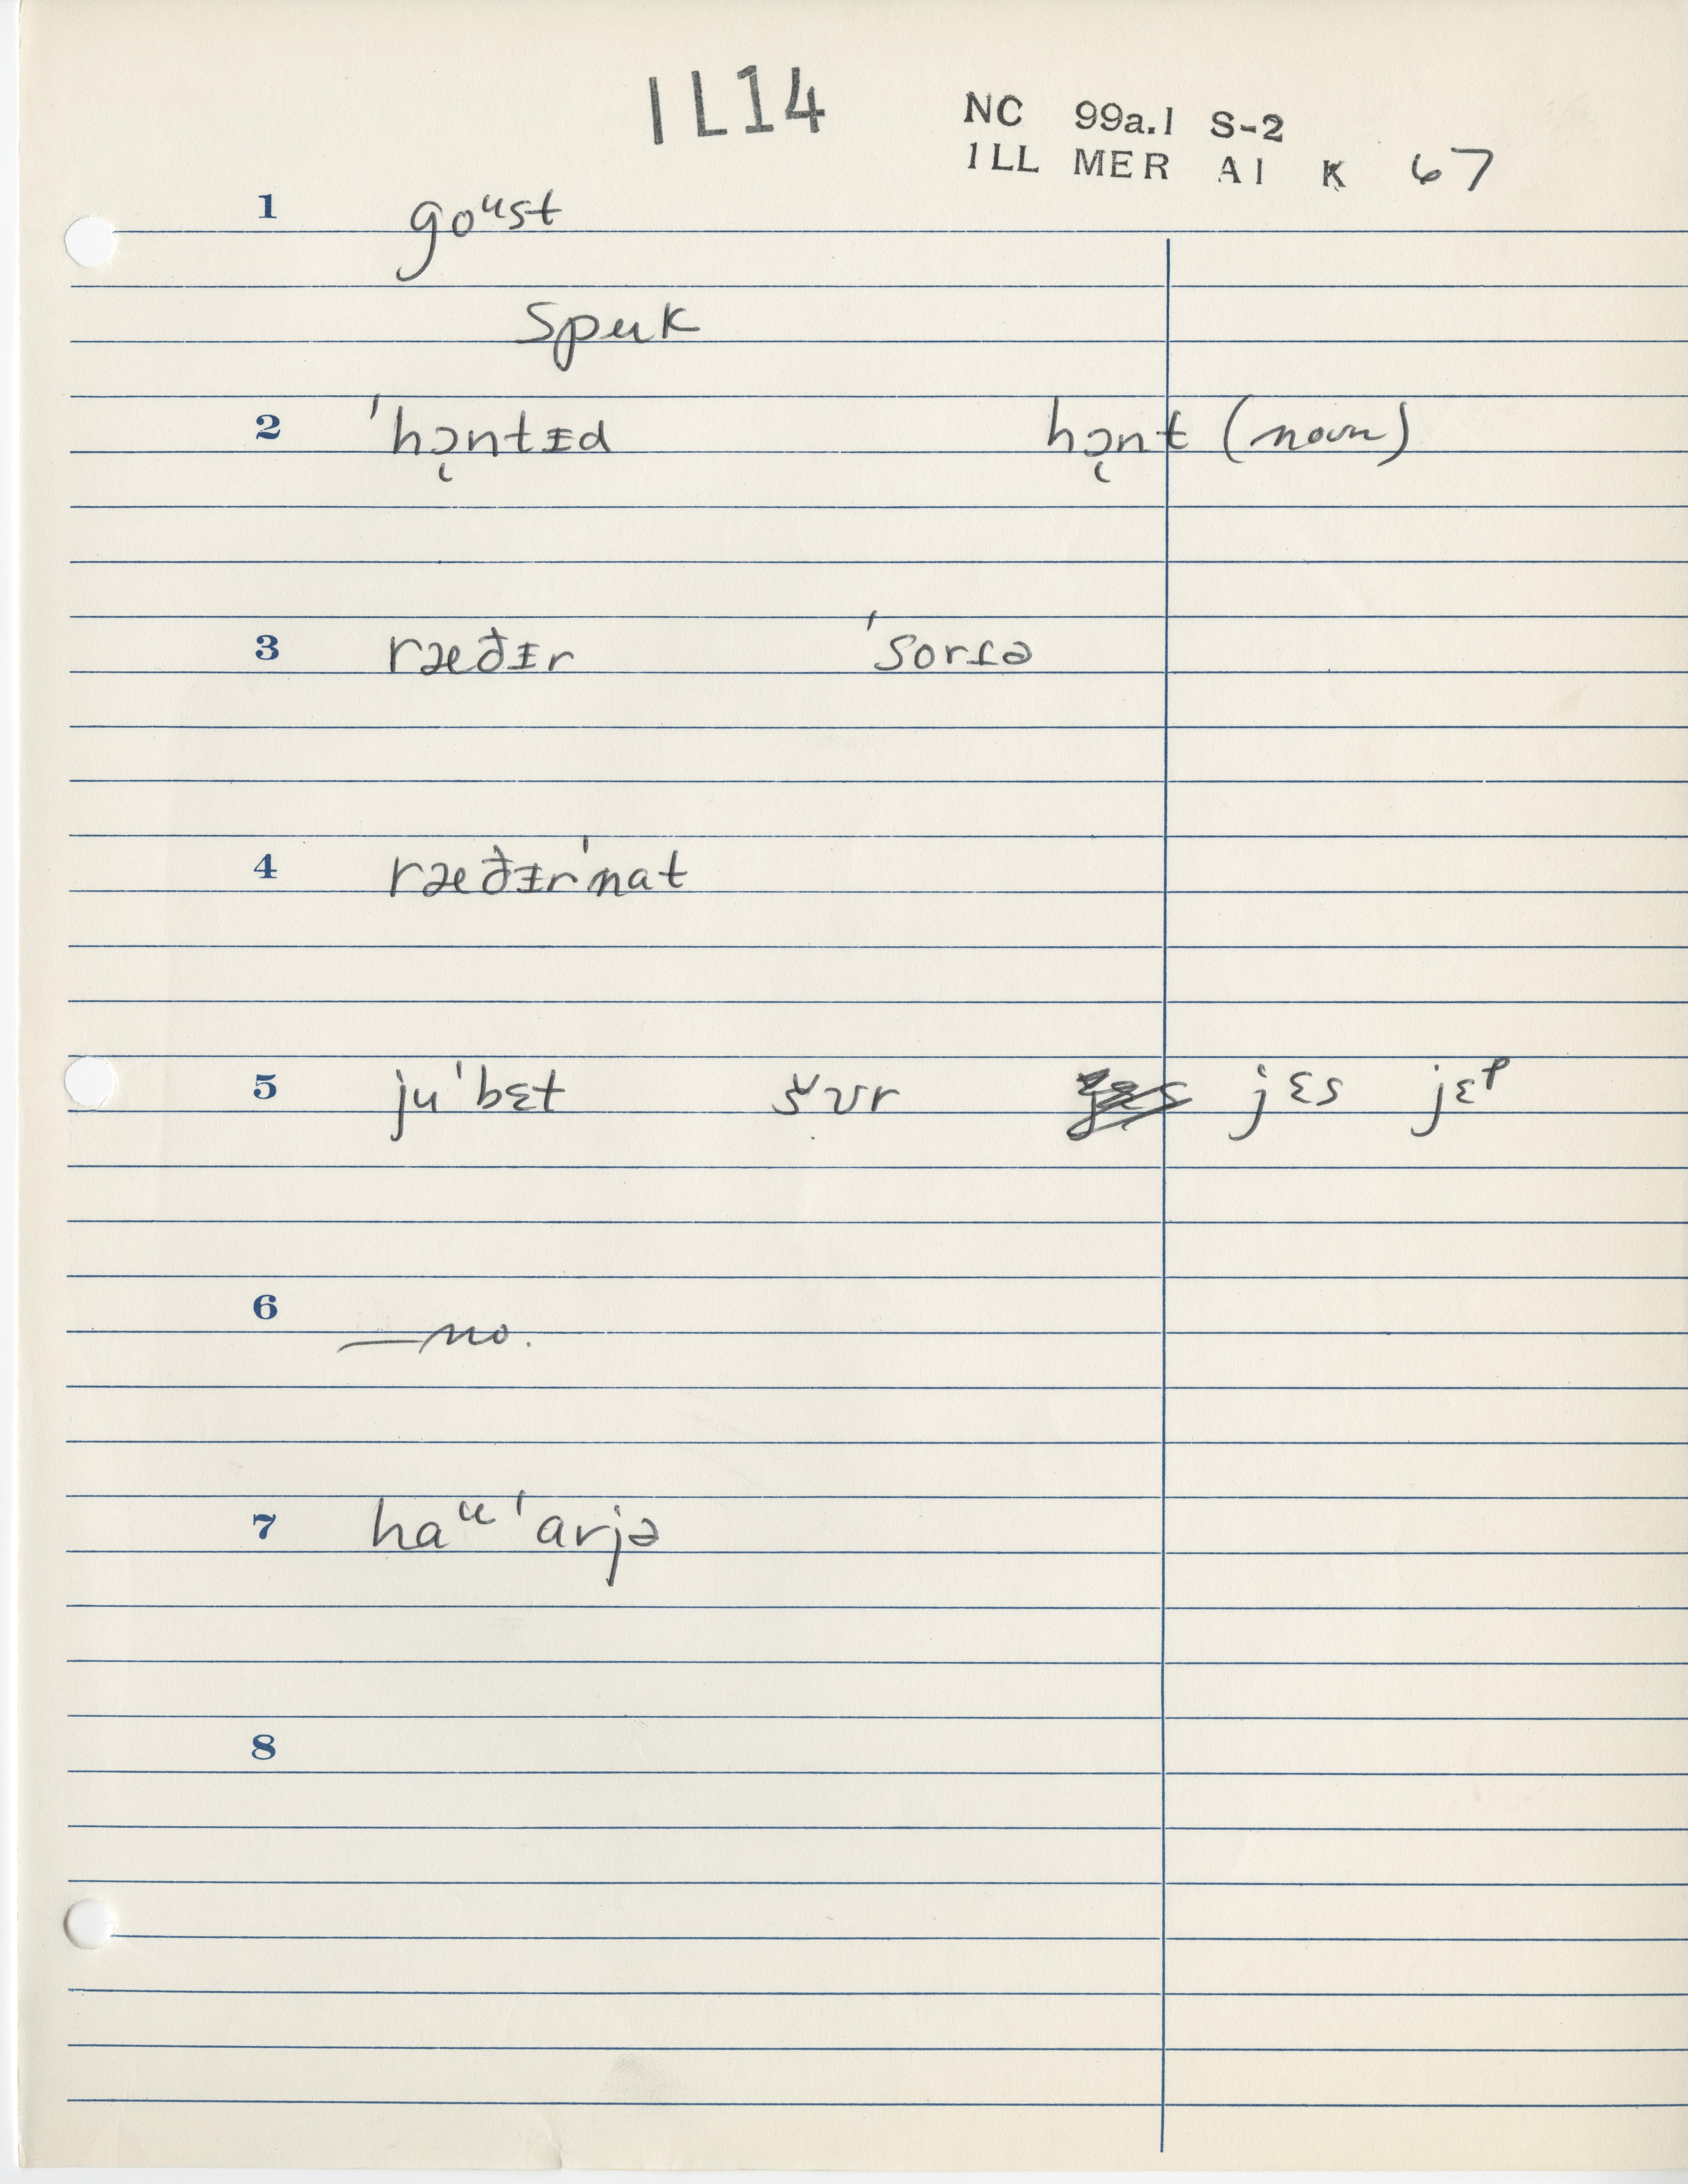 IL14
NC 99a.1 S-2
ILL MER A1 K 67
1 goᵘst
spuk
2 ˈhɔ̨ntɪ̵d hɔ̨nt (noun)
3 ræðɪ̵r ˈsorɪə
4 ræðɪ̵rˈnat
5 juˈbɛt šʊr jɛs jɛᵖ
6 —no.
7 haᵘˈarjə
8